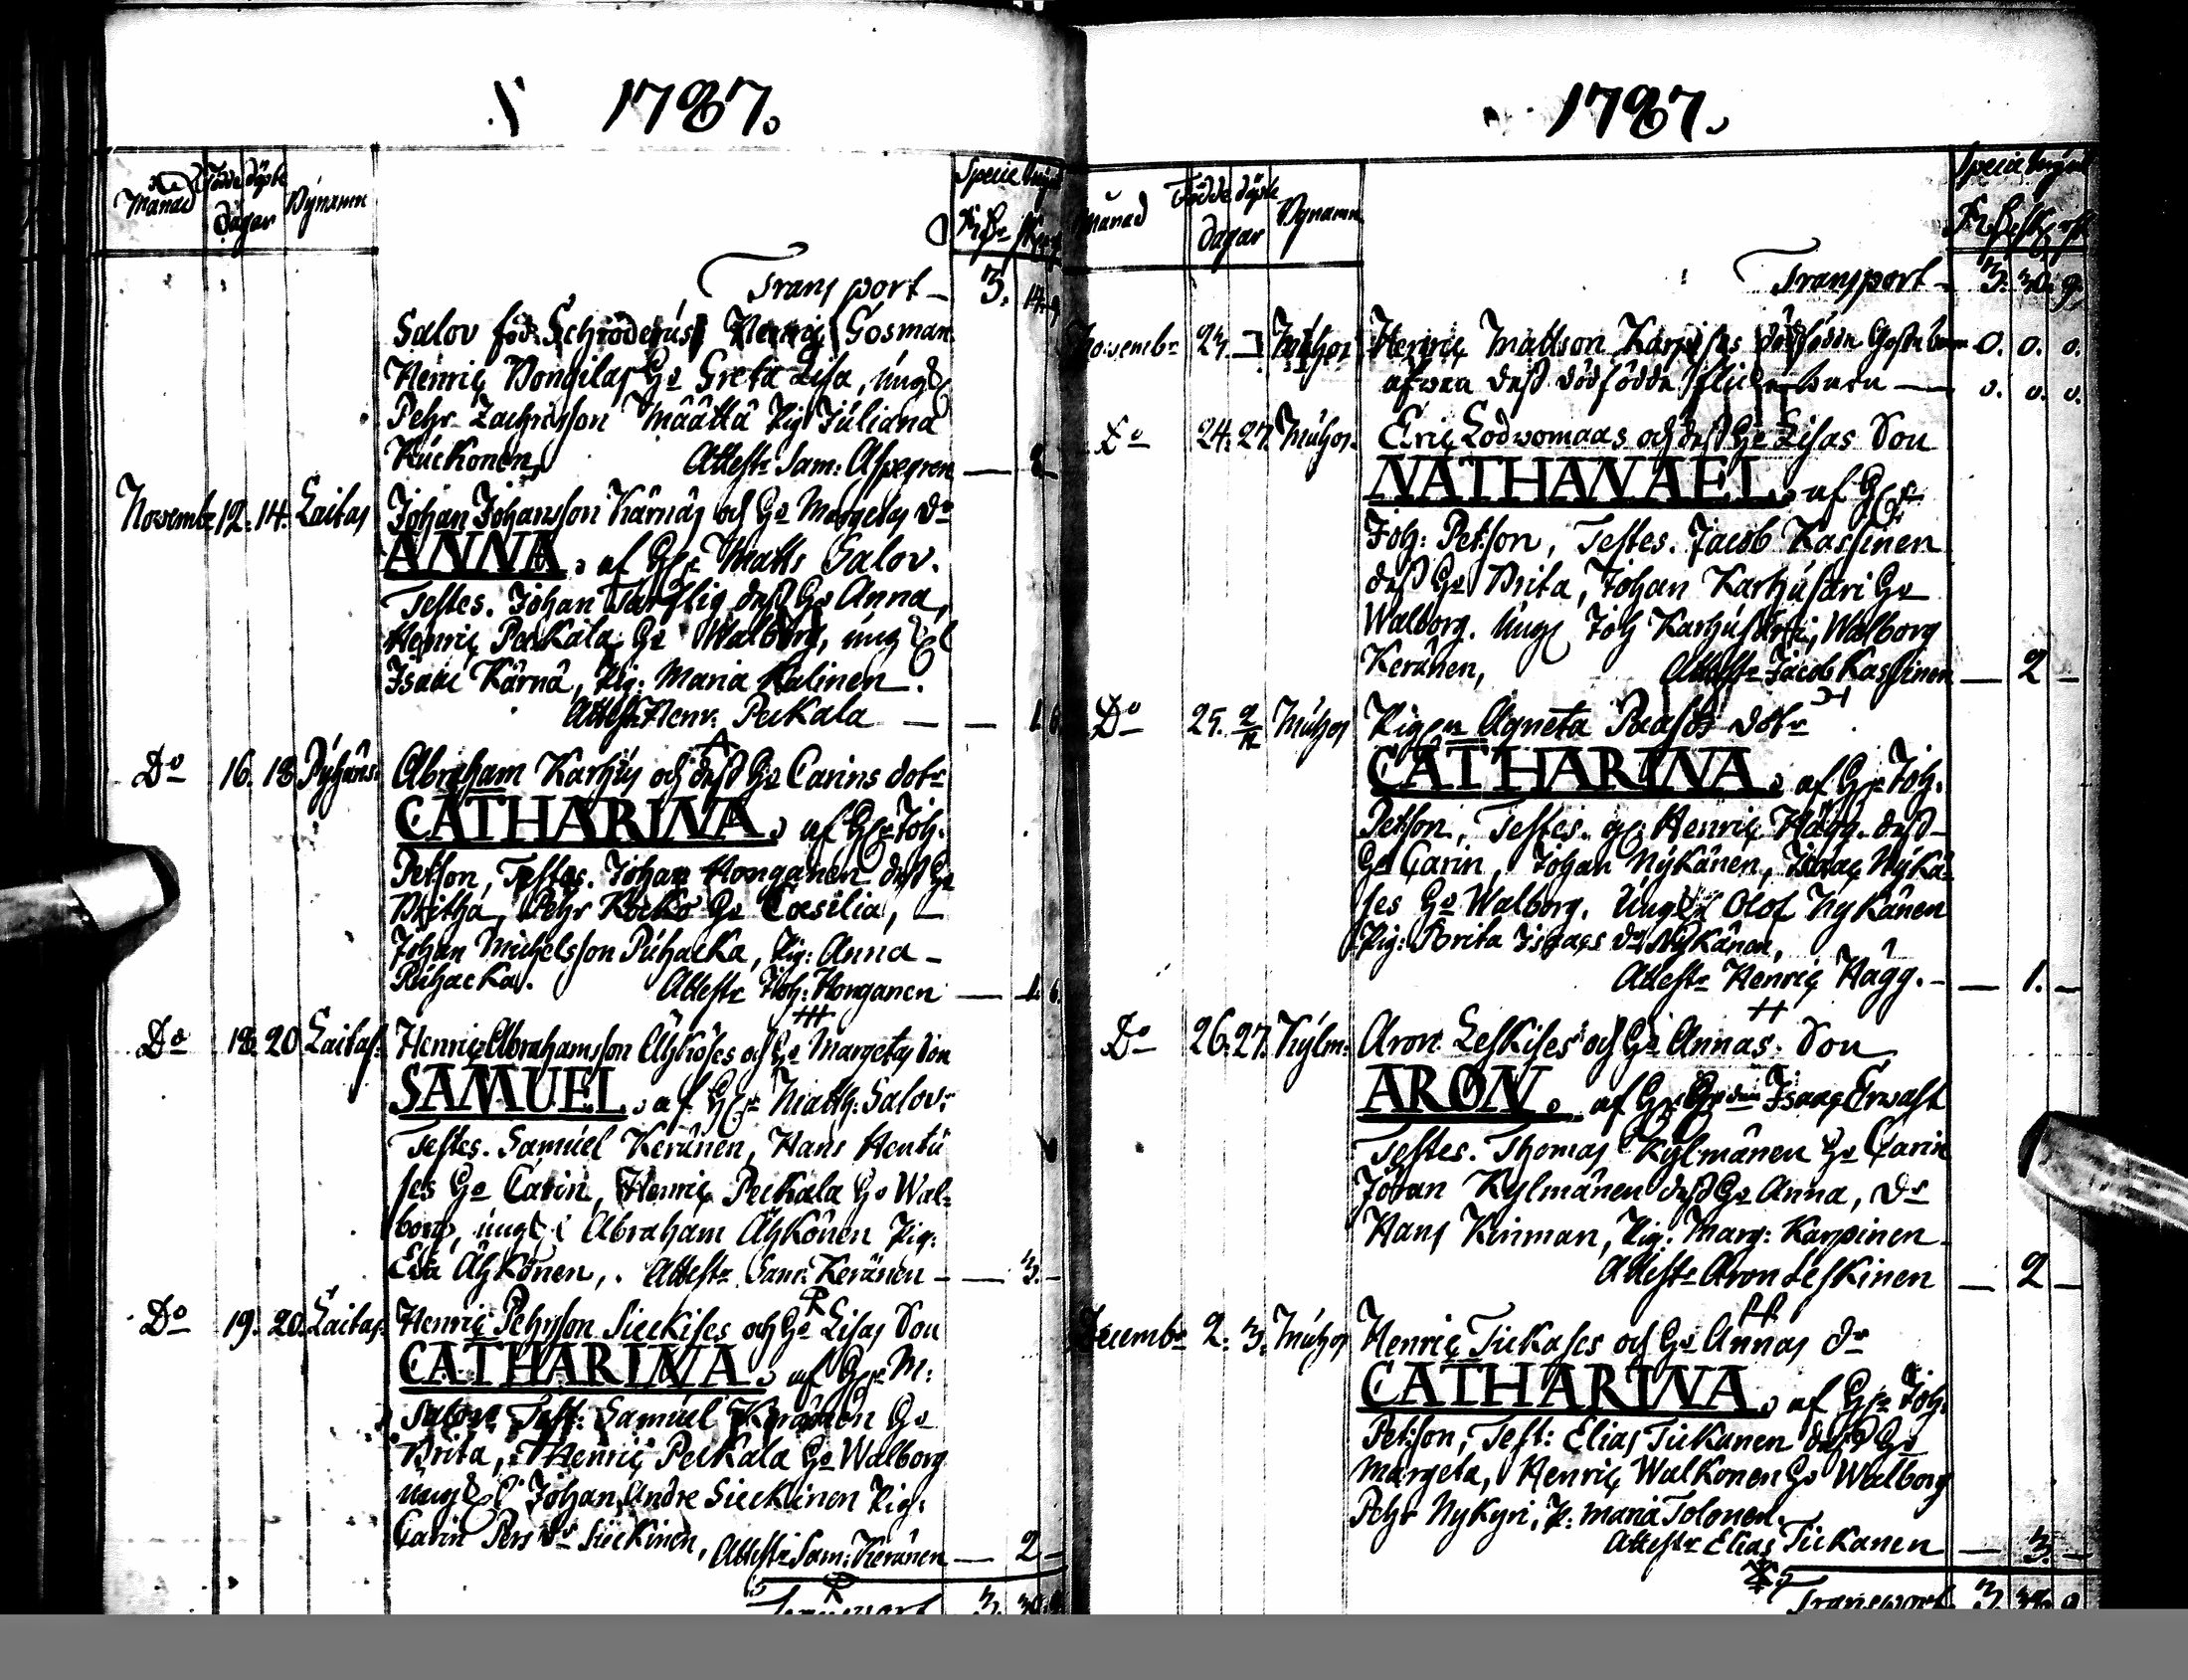 1787.
Månad Födde döpte dagar Bynamn Specie
Transport 3. 14.
Salov föd. Schroderus Henric Gosman
Henric Pongilas Ho Greta Lisa, ung
Pehr Zachrisson Määttä Pig Juliana
Kuckonen, Attestr Sam: Aspegren
Novembr 12. 14. Laitas Johan Johansson Kärnäs och Ho Margetas dr
ANNA. af Matts Salov.
Testes. Johan dess Ho Anna,
Henric Peckala Ho Walborg, ung
Isaac Kärnä, Pig: Maria Kalinen.
Attestr Henr. Peckala 1. 6
Do 16. 18 Pyhäns: Abraham Karhus och dess Ho Carins dotr
CATHARINA. af Joh.
Petson, Testes. Johan Honganen dess Ho
Britha, Pehr Kocko Ho Cœsilia,
Johan Michelsson Puhacka, Pig: Anna
Puhacka. Attestr Joh: Honganen 1. 6.
Do 18. 20 Laitas: Henric Abrahamsson Ähköses och Ho Margetas Son
SAMUEL. af Matth: Salov:
Testes. Samuel Keränen, Hans Hentu
ses Ho Carin, Henric Peckala Ho Wal-
borg, ung Abraham Ähkönen Pig:
Eva Ähkönen, Attestr Sam: Keränen 3.
Do 19. 20. Laitas. Henric Pehrsson Sieckises och Ho Lisas Son
CATHARINA. af M:
Salov. Test: Samuel Keränen Ho
Brita, Henric Peckala Ho Walborg
ung Johan Andre Sieckinen Pig:
Carin Pers dr Sieckinen, Attestr Sam: Keränen 2
Transport 3.
1787.
Månad Födde döpte dagar Bynamn Specie
Transport 3. 30. 9.
Novembr 23. Muhos Henric Mattson Karpises dödfödda Gosse barn 0. 0. 0.
afven dess dödfödde flicke barn 0. 0. 0.
Do 24. 27. Muhos. Eric Lodwomaas och dess Ho Lisas Son
NATHANAEL. af
Joh: Petson, Testes. Jacob Kassinen
dess Ho Brita, Johan Karhusari Ho
Walborg. Ung Joh Karhusari, Walborg
Keränen, Attestr Jacob Kassinen 2
Do 25. 2/12 Muhos Pigen Agneta Paasos dotr
CATHARINA. af Joh.
Petson, Testes. Henric Hägg. dess
Ho Carin, Johan Nykänen, Isaac Nykä-
ses Ho Walborg. Ung Olof Nykänen
Pig: Brita Isaacs dr Nykänen,
Attestr Henric Hägg. 1.
Do 26. 27. Kylm: Aron Leskises och Ho Annas Son
ARON. af Isaac Erwast
Testes. Thomas Kylmänen Ho Carin
Johan Kylmänen dess Ho Anna, Dr
Hans Kinman, Pig: Marg: Karpinen
Attestr Aron Leskinen 2
Decembr 2. 3. Muhos Henric Tickases och Ho Annas dr
CATHARINA. af Joh.
Petson, Test: Elias Tickanen dess Ho
Margeta, Henric Walkonen Ho Walborg
Pehr Nykyri, P: Maria Tolonen.
Attestr Elias Tickanen 3.
Transport 3.